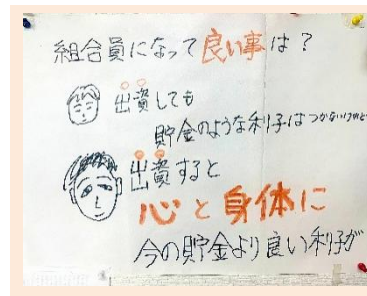 組合員になって良い事は？
出資しても
貯金のような利子はつかないけれど
出資すると
心と身体に
今の貯金より良い利子が